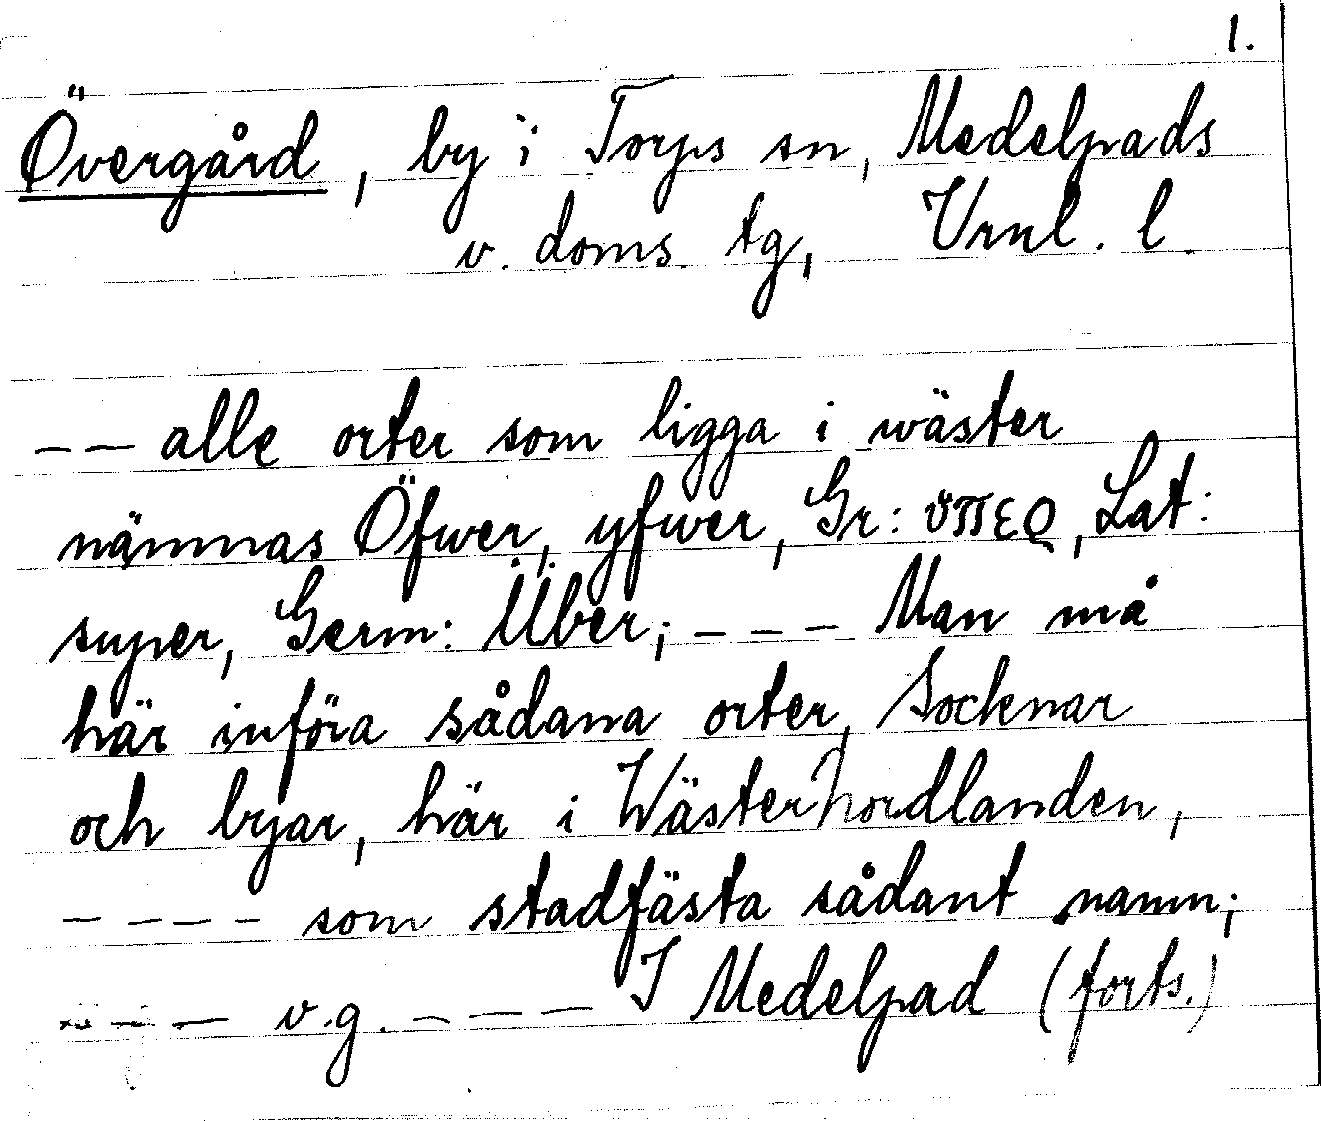 1.
Övergård, by i Torps sn, Medelpads
v. doms. tg, Vrnl. l.
-- alle orter som ligga i wäster
nämnas Öfwer, yfwer, Gr: υπερ, Lat:
super, Germ: Über; --- Man må
här införa sådana orter, Socknar
och byar, här i Wästernordlanden,
---- som stadfästa sådant namn;
--- v.g. --- I Medelpad (forts.)